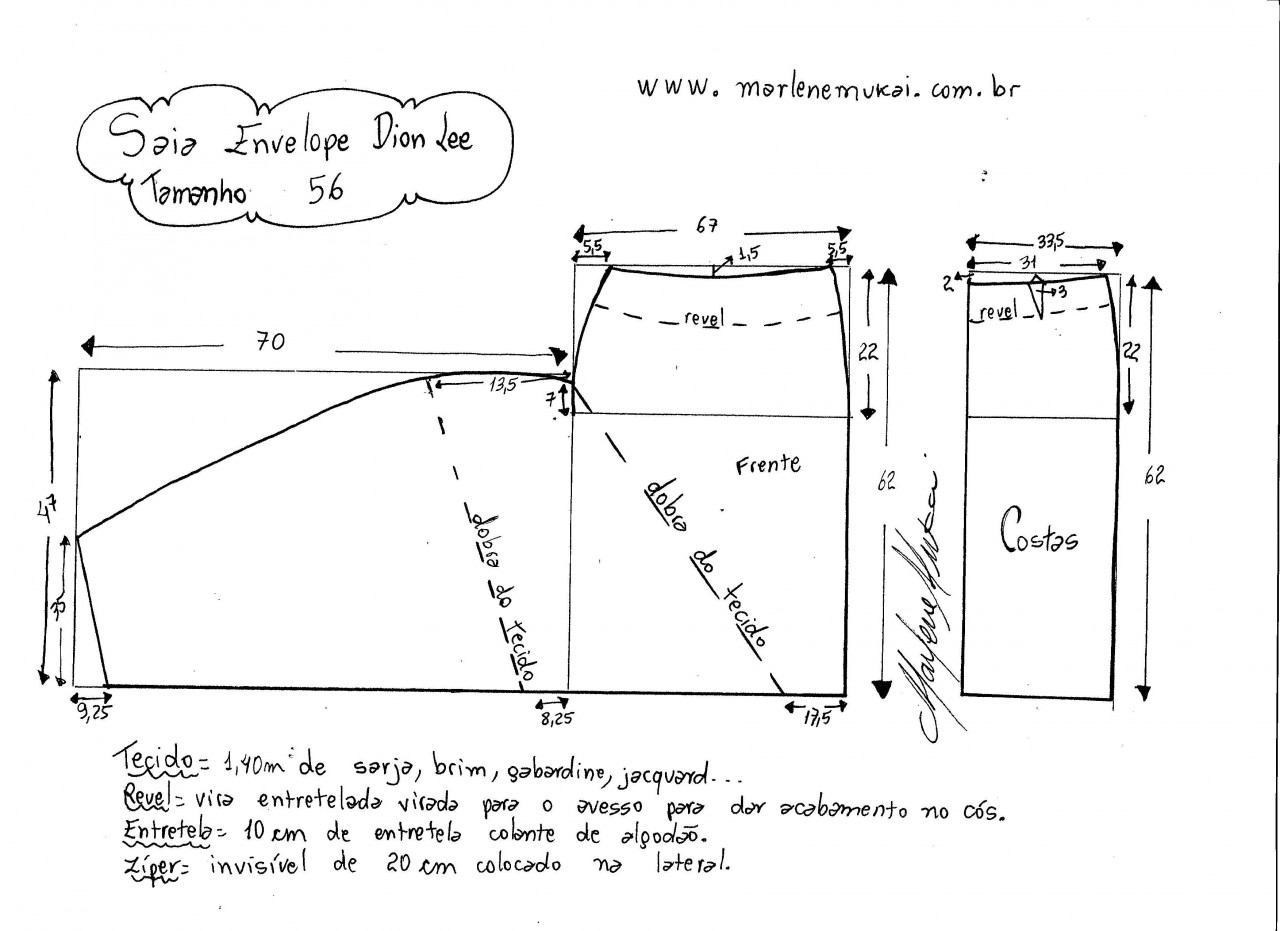 www.marlenemukai.com.br
Saia Envelope Dion Lee
Tamanho 56
67
5,5
1,5
5,5
33,5
31
2
3
revel
revel
70
13,5
7
22
22
Frente
62
62
47
dobra do tecido
dobra do tecido
Costas
Marlene Mukai
9,25
8,25
17,5
Tecido= 1,40m de sarja, brim, gabardine, jacquard...
Revel= vira entretelada virada para o avesso para dar acabamento no cós.
Entretela= 10 cm de entretela colante de algodão.
Zíper= invisível de 20 cm colocado na lateral.